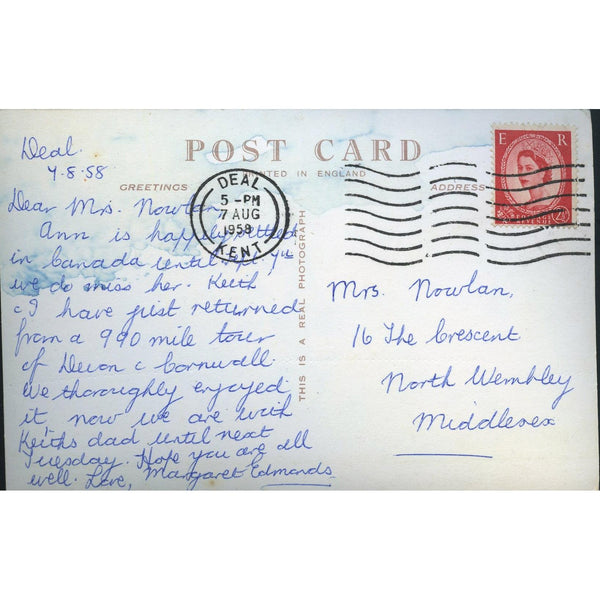 POST CARD
PRINTED IN ENGLAND
GREETINGS
ADDRESS
THIS IS A REAL PHOTOGRAPH
E R
DEAL
5 - PM
7 AUG
1958
KENT
Deal.
7.8.58
Dear Mrs. Nowlan
Ann is happily settled
in Canada until 9th
we do miss her. Keith
& I have just returned
from a 990 mile tour
of Devon & Cornwall.
We thoroughly enjoyed
it, now we are with
Keiths dad until next
Tuesday. Hope you are all
well. Love, Margaret Edmonds
Mrs. Nowlan,
16 The Crescent
North Wembley
Middlesex